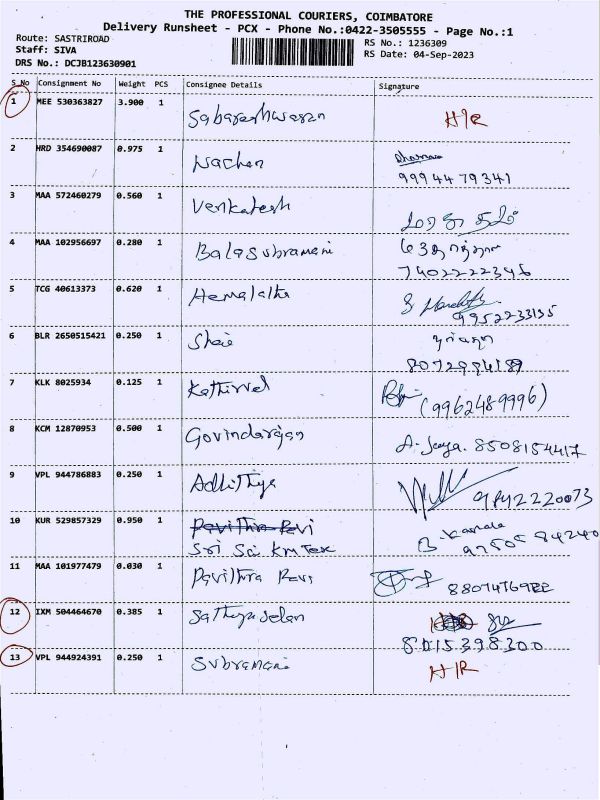 THE PROFESSIONAL COURIERS, COIMBATORE
Delivery Runsheet - PCX - Phone No.:0422-3505555 - Page No.:1
Route: SASTRIROAD
Staff: SIVA
DRS No.: DCJB123630901
RS No.: 1236309
RS Date: 04-Sep-2023
S No Consignment No Weight PCS Consignee Details Signature
1 MEE 530363827 3.900 1 Sabareshwaran H/R
2 HRD 354690087 0.975 1 Lachan
9994479341
3 MAA 572460279 0.560 1 Venkatesh
4 MAA 102956697 0.280 1 Balasubramani
7402222346
5 TCG 40613373 0.620 1 Hemalatha
9952233135
6 BLR 2650515421 0.250 1
7 KLK 8025934 0.125 1 Kathirvel (9962489996)
8 KCM 12870953 0.500 1 Govindarajan A. Jaya. 8508154417
9 VPL 944786883 0.250 1 Adhithya 9842220073
10 KUR 529857329 0.950 1 Pavithra Ravi
Sri Sai Km Tex B. Kamala
11 MAA 101977479 0.030 1 Pavithra Ravi
12 IXM 504464670 0.385 1 Sathyaselan
8015398300
13 VPL 944924391 0.250 1 Subramani H/R